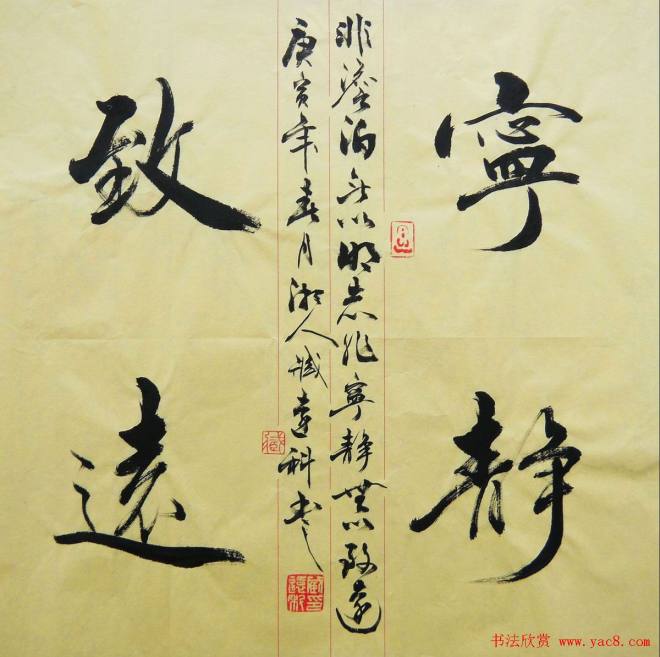 寧靜
致遠
非澹泊无以明志非寧靜無以致遠
庚寅年春月湘人臧遠科書
书法欣赏 www.yac8.com